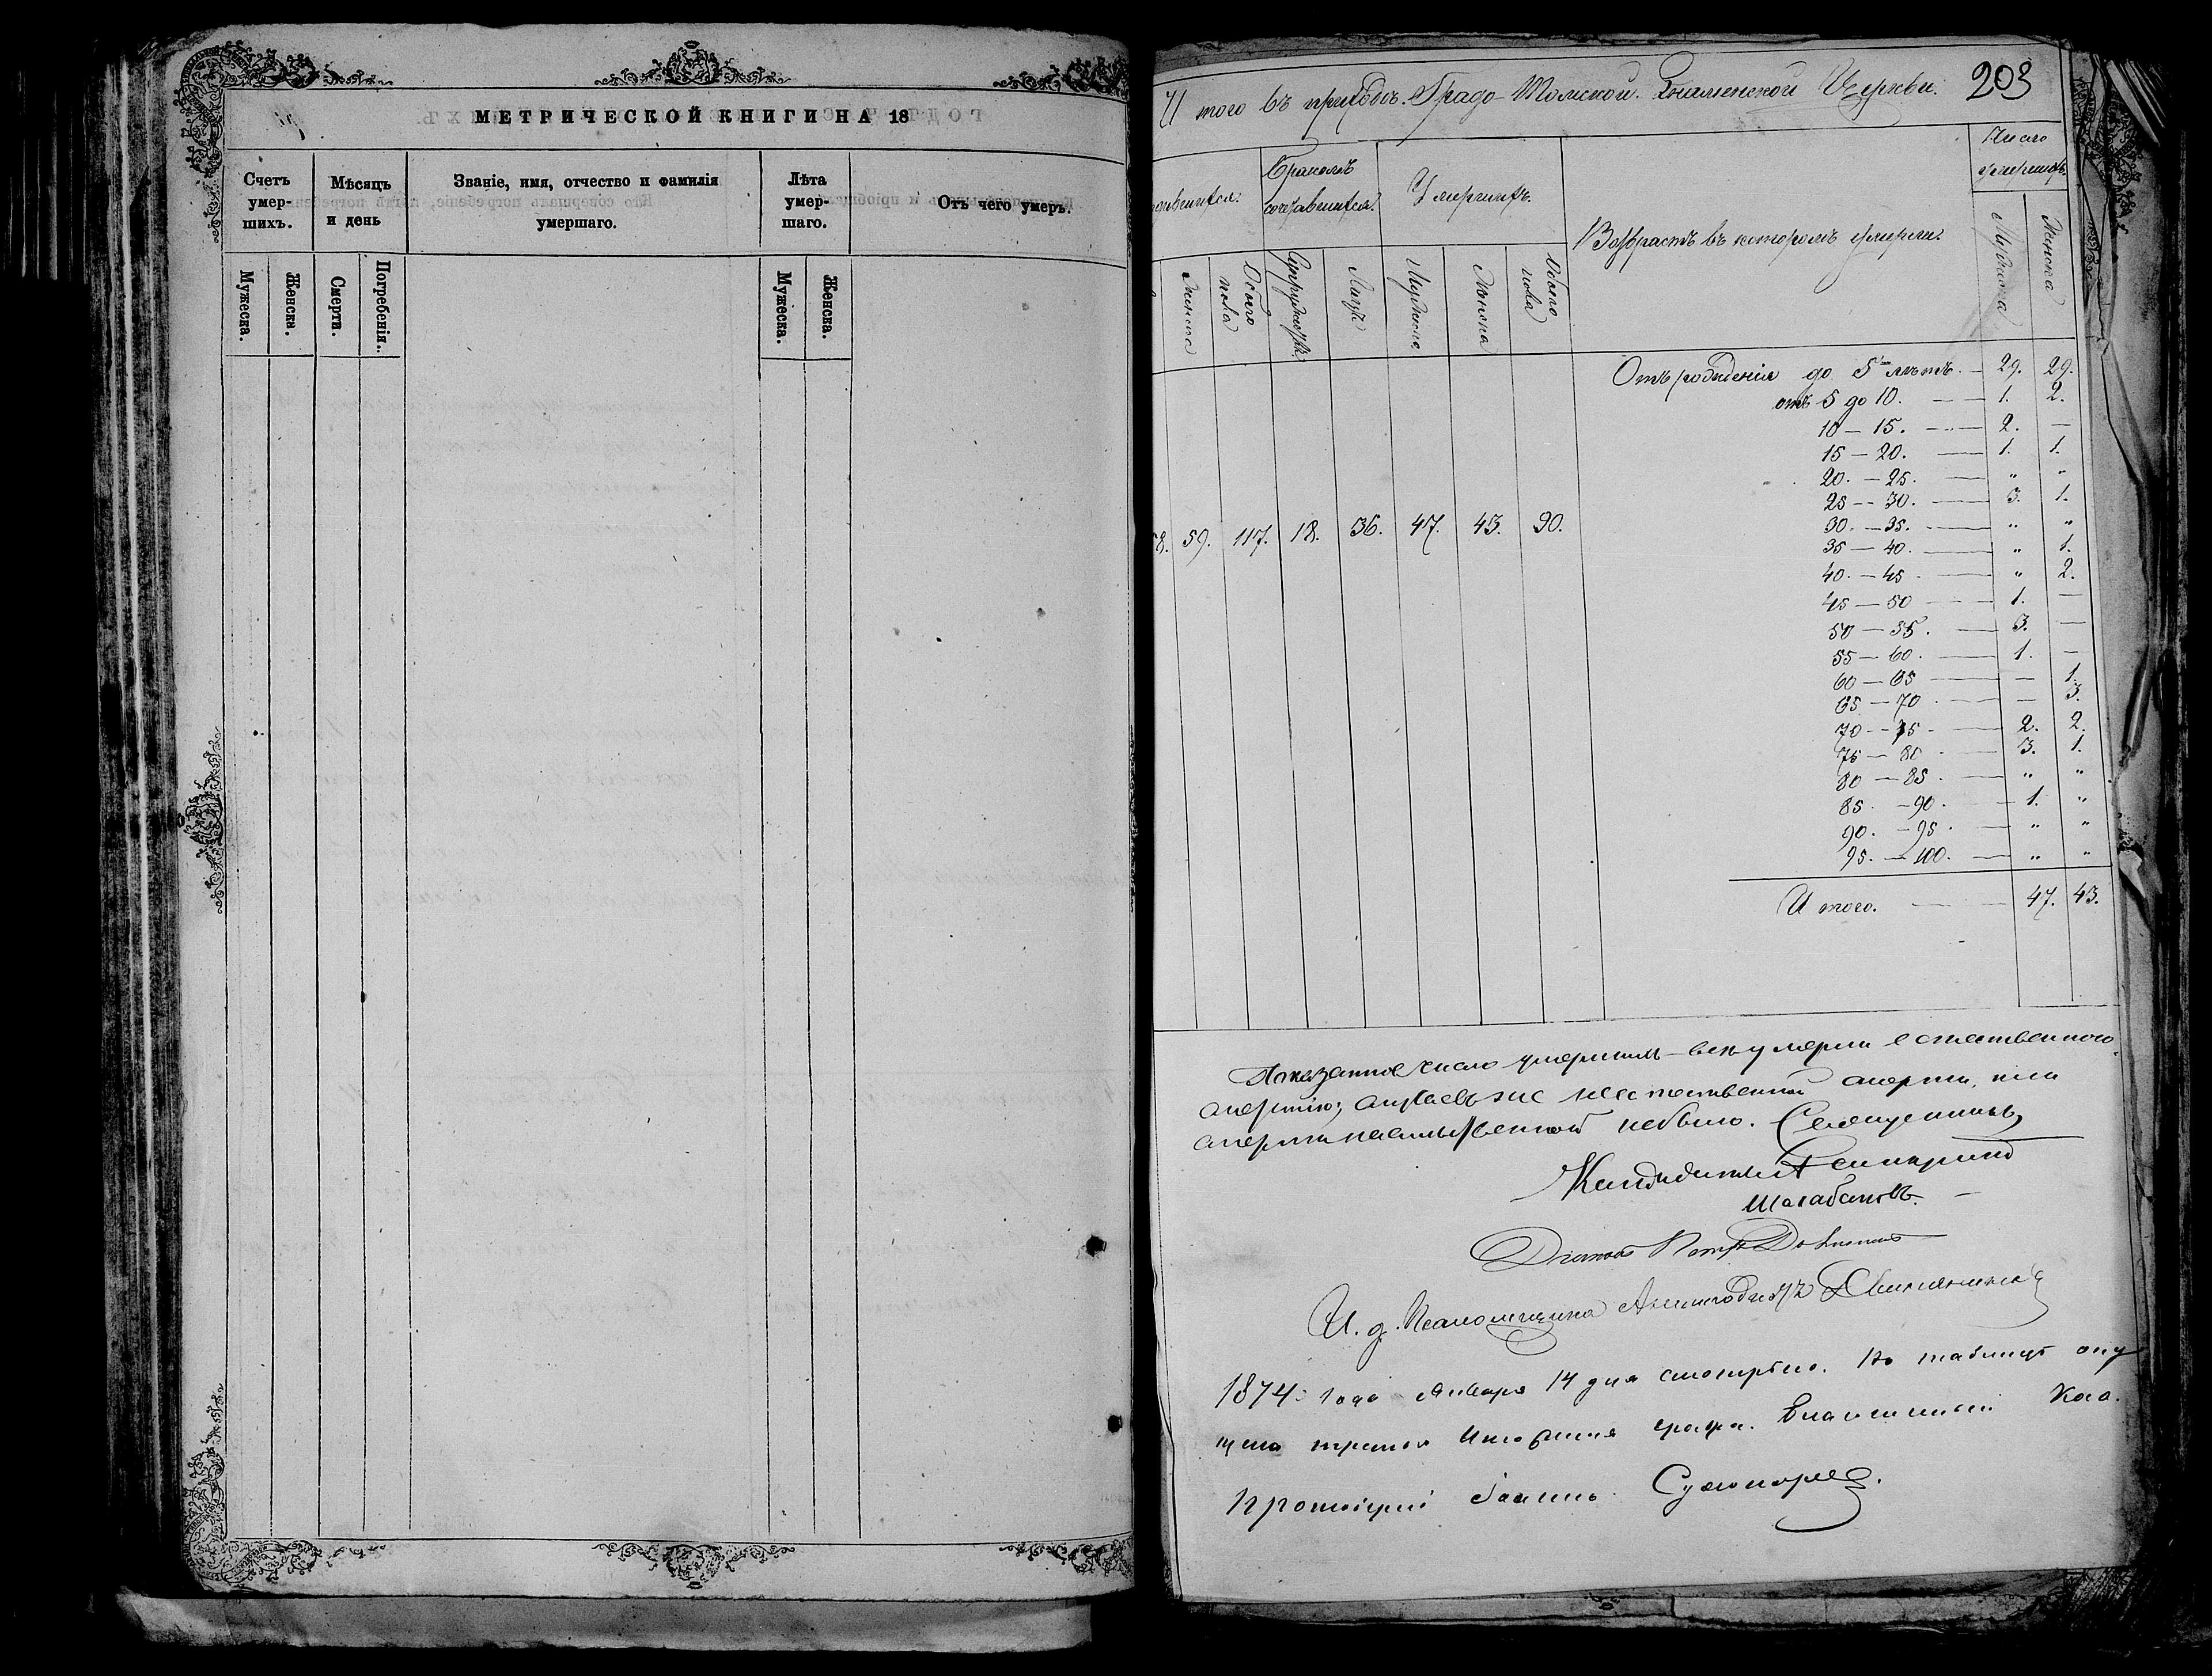 МЕТРИЧЕСКОЙ КНИГИ НА 18
Счетъ умер- шихъ.
Мѣсяцъ и день
Званіе, имя, отчество и фамилія умершаго.
Лѣта умер- шаго.
Отъ чего умеръ.
Мужеска.
Женска.
Смерти.
Погребенія.
Мужеска.
Женска.
И того въ приходѣ Градо-Томской Знаменской Церкви. 203
Бракомъ сочетавшихся.
Умершихъ.
Возрастъ въ которомъ умерли.
Число умершихъ.
Женска
Обоего пола
Супружествъ
Лицъ
Мужеска
Женска
Обоего пола
Мужеска
Женска
8. 59. 117. 18. 36. 47. 43. 90.
Отъ рожденія до 5 лѣтъ. — 29. 29.
отъ 5 до 10. — 1. 2.
10 — 15. — 2. —
15 — 20. — 1. 1.
20. — 25. — " "
25 — 30. — 3. 1.
30. — 35. — " "
35 — 40. — " 1.
40. — 45 — " 2.
45 — 50 — 1. —
50 — 55. — 3. —
55 — 60. — 1. —
60 — 65 — — 1.
65 — 70. — — 3.
70 — 75 — 2. 2.
75 — 80 — 3. 1.
80 — 85. — " "
85. — 90. — 1. "
90. — 95. — " "
95. — 100. — " "
И того. — 47. 43.
Показанное число умершихъ — всѣ умерли естественною
смертію; случаевъ же неестественной смерти, или
смерти насильственной небыло. Священникъ
Кандидатъ
Діаконъ Петръ
И. д. Псаломщика
1874 года Января 14 дня смотрѣно. Въ таблицѣ опу
щена графа.
Протоіерей